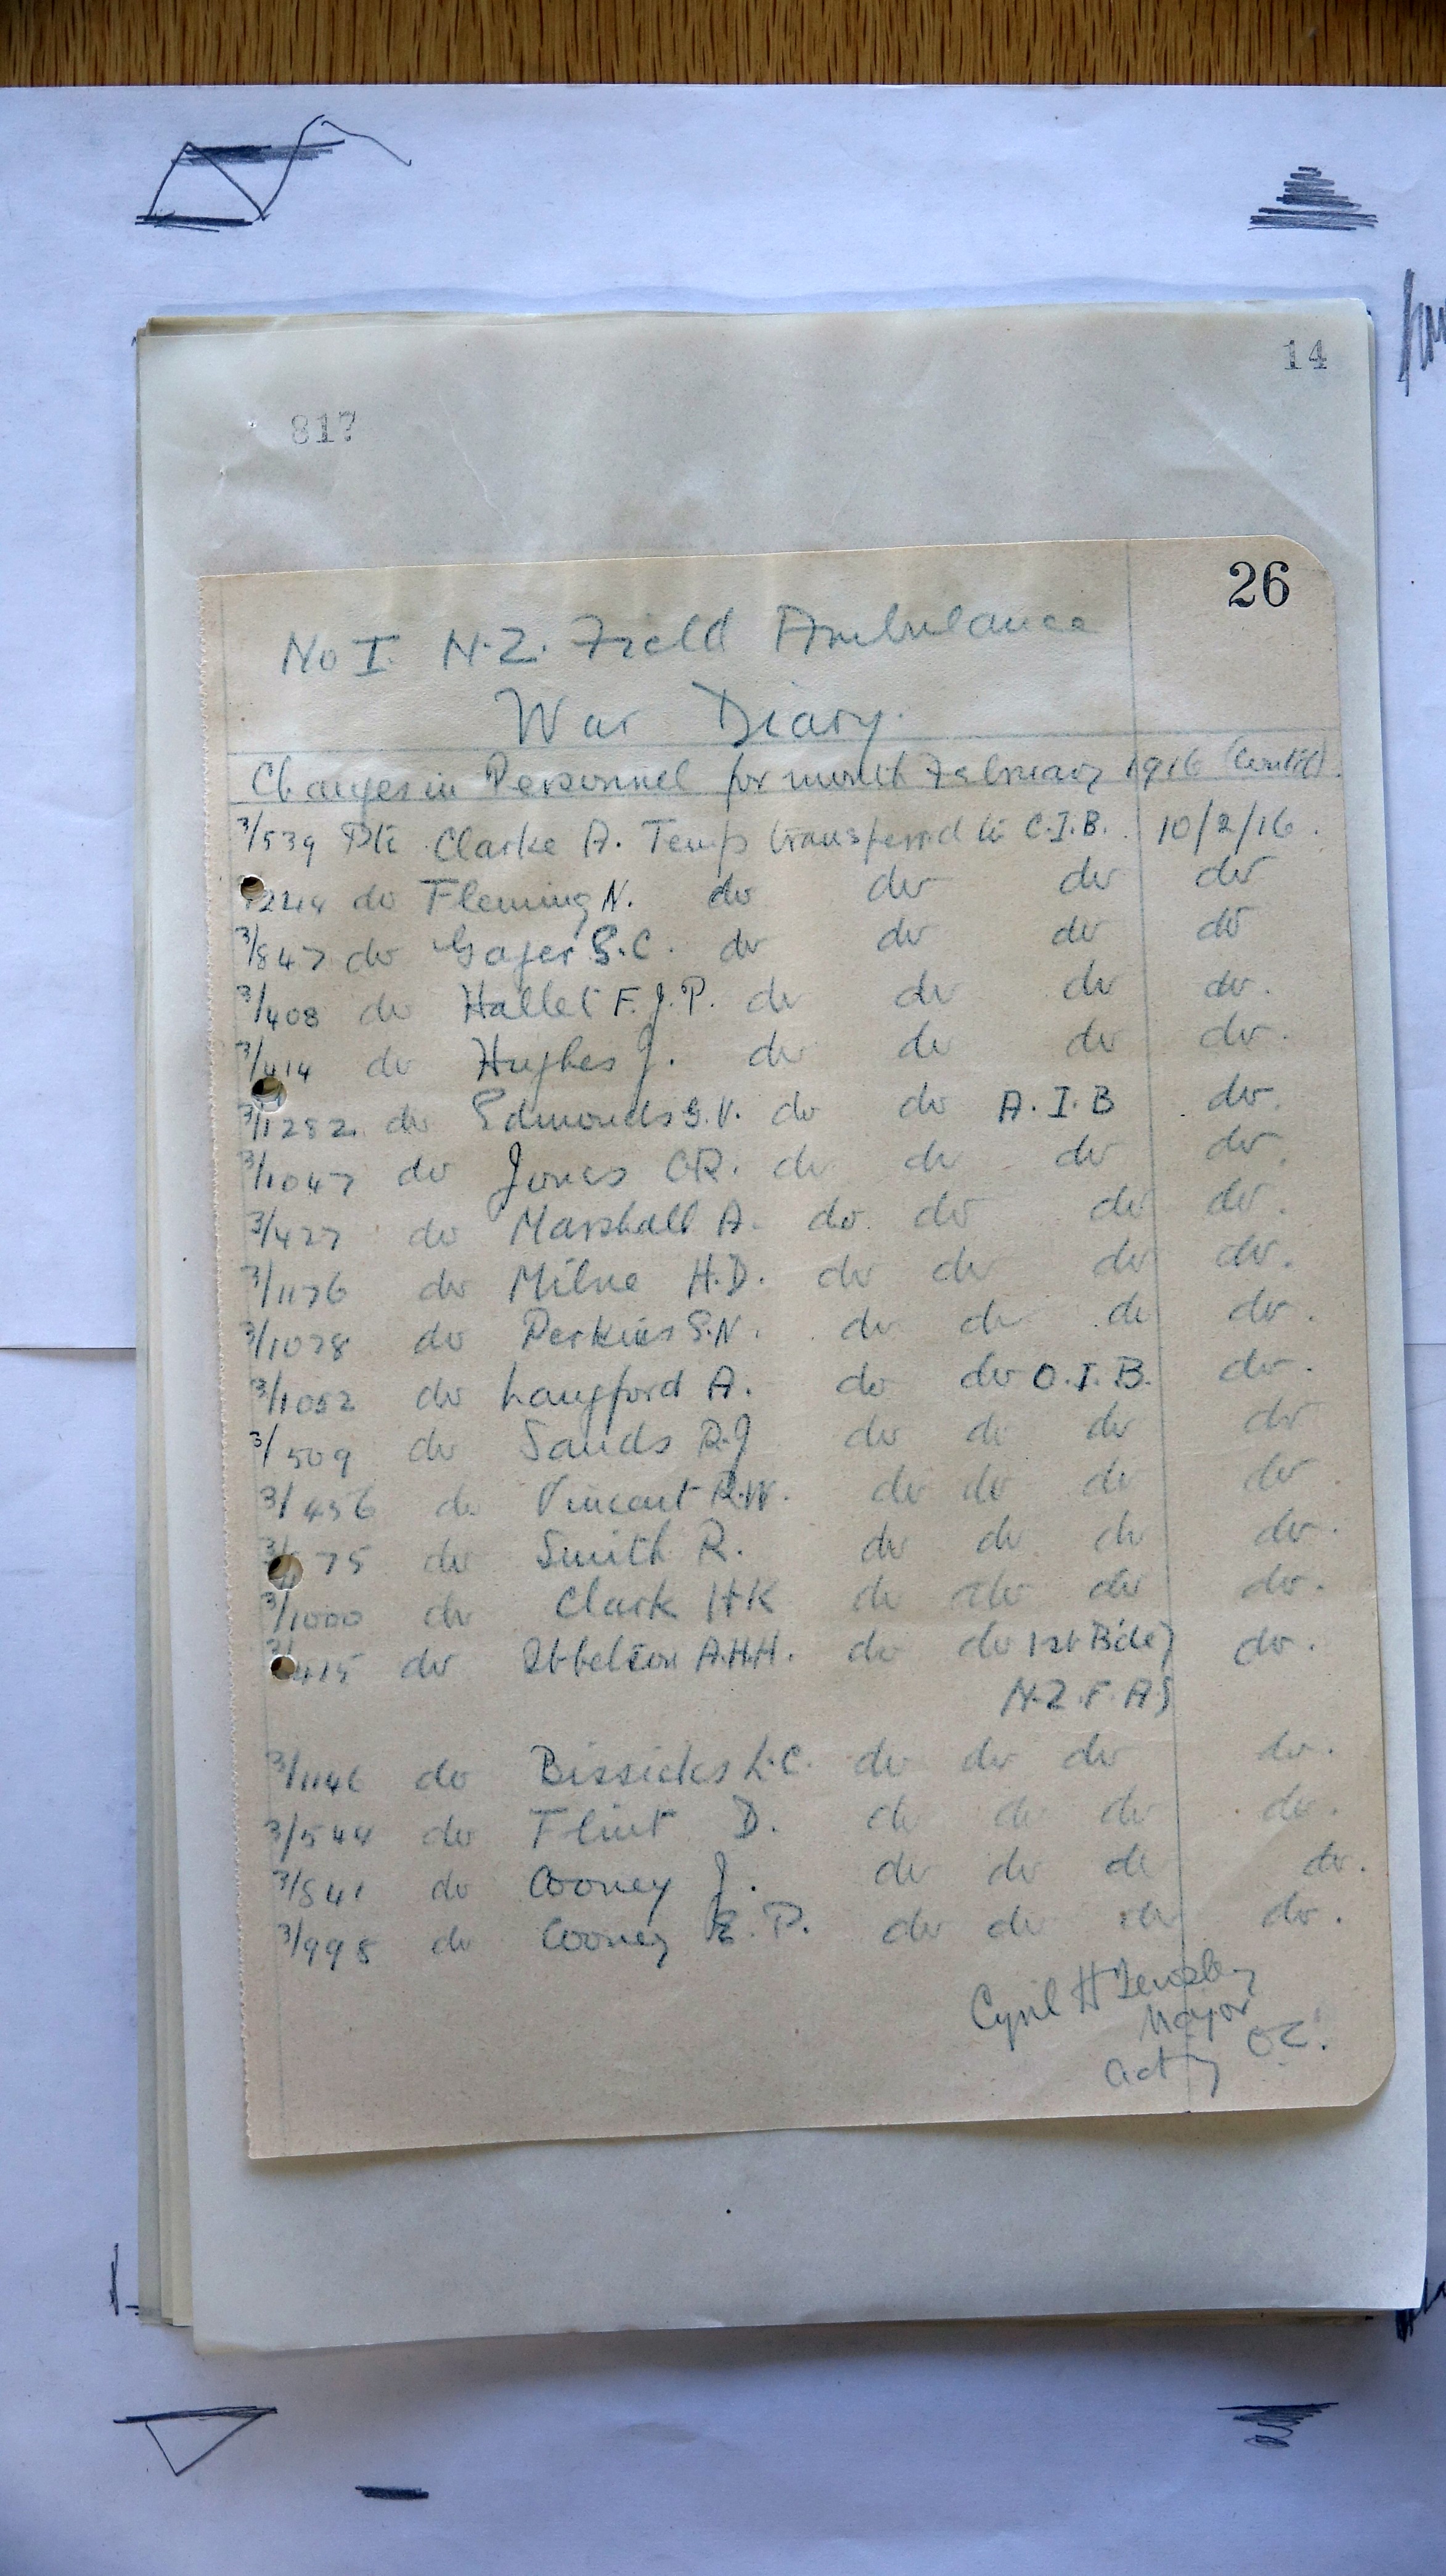 14
817
26
No I. N.Z. Field Ambulance
War Diary.
Changes in Personnel for month February 1916 (Contd).
3/539 Pte Clarke A. Temp transferred to C.I.B. 10/2/16.
224 do Fleming N. do do do do
3/847 do G.C. do do do do
3/408 do Hallet F.J.P. do do do do.
3/414 do Hughes J. do do do do.
3/1282 do Edmonds G.V. do do A.I.B do.
3/1047 do Jones C.R. do do do do.
3/427 do Marshall A. do. do do do.
3/1176 do Milne H.D. do do do do.
3/1078 do Perkins S.N. do do do do.
3/1052 do Langford A. do do O.I.B. do.
3/509 do Sands R.J do do do do
3/456 do Vincent R.W. do do do do.
75 do Smith R. do do do do.
3/1000 do Clark HK do do do do.
3/415 do Ibbetson A.H.H. do do 1st Bde) do.
N.Z.F.A)
3/1146 do Bissicks L.C. do do do do.
3/544 do Flint D. do do do do.
3/541 do Cooney J. do do do do.
3/998 do Cooney E.P. do do do do.
Cyril H Tewsley
Major
actg OC.